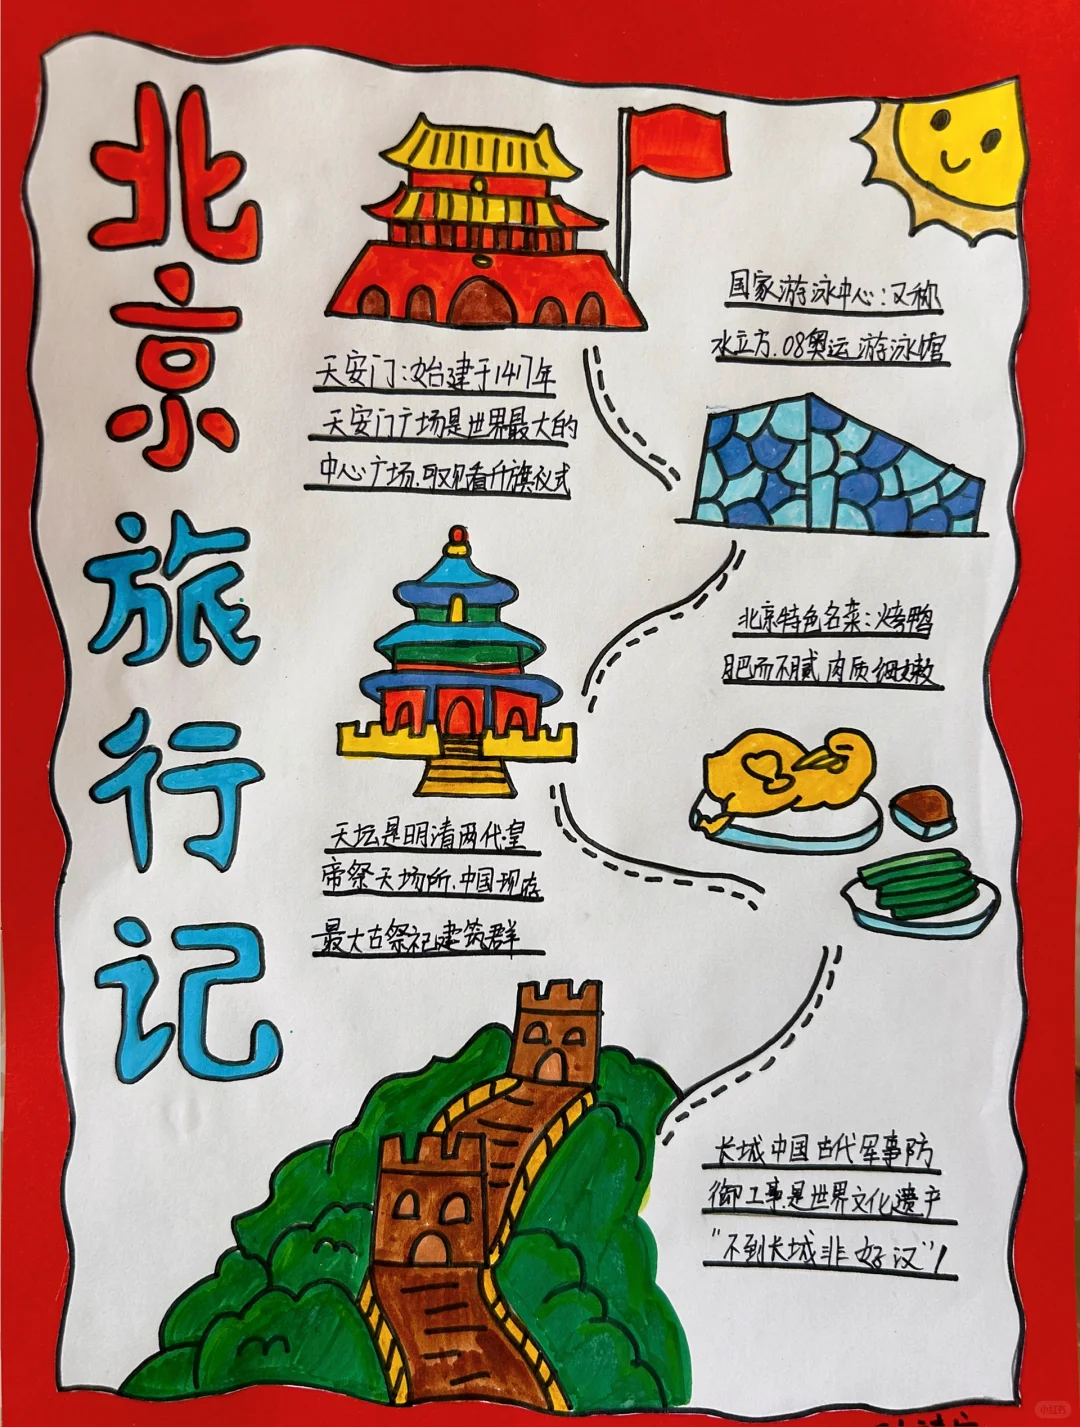 北京旅行记
天安门:始建于1417年
天安门广场是世界最大的
中心广场.可以看升旗仪式
国家游泳中心:又称
水立方.08奥运游泳馆
天坛是明清两代皇
帝祭天场所.中国现存
最大古祭祀建筑群
北京特色名菜:烤鸭
肥而不腻 肉质细嫩
长城中国古代军事防
御工事.是世界文化遗产
"不到长城非好汉"!
小红书